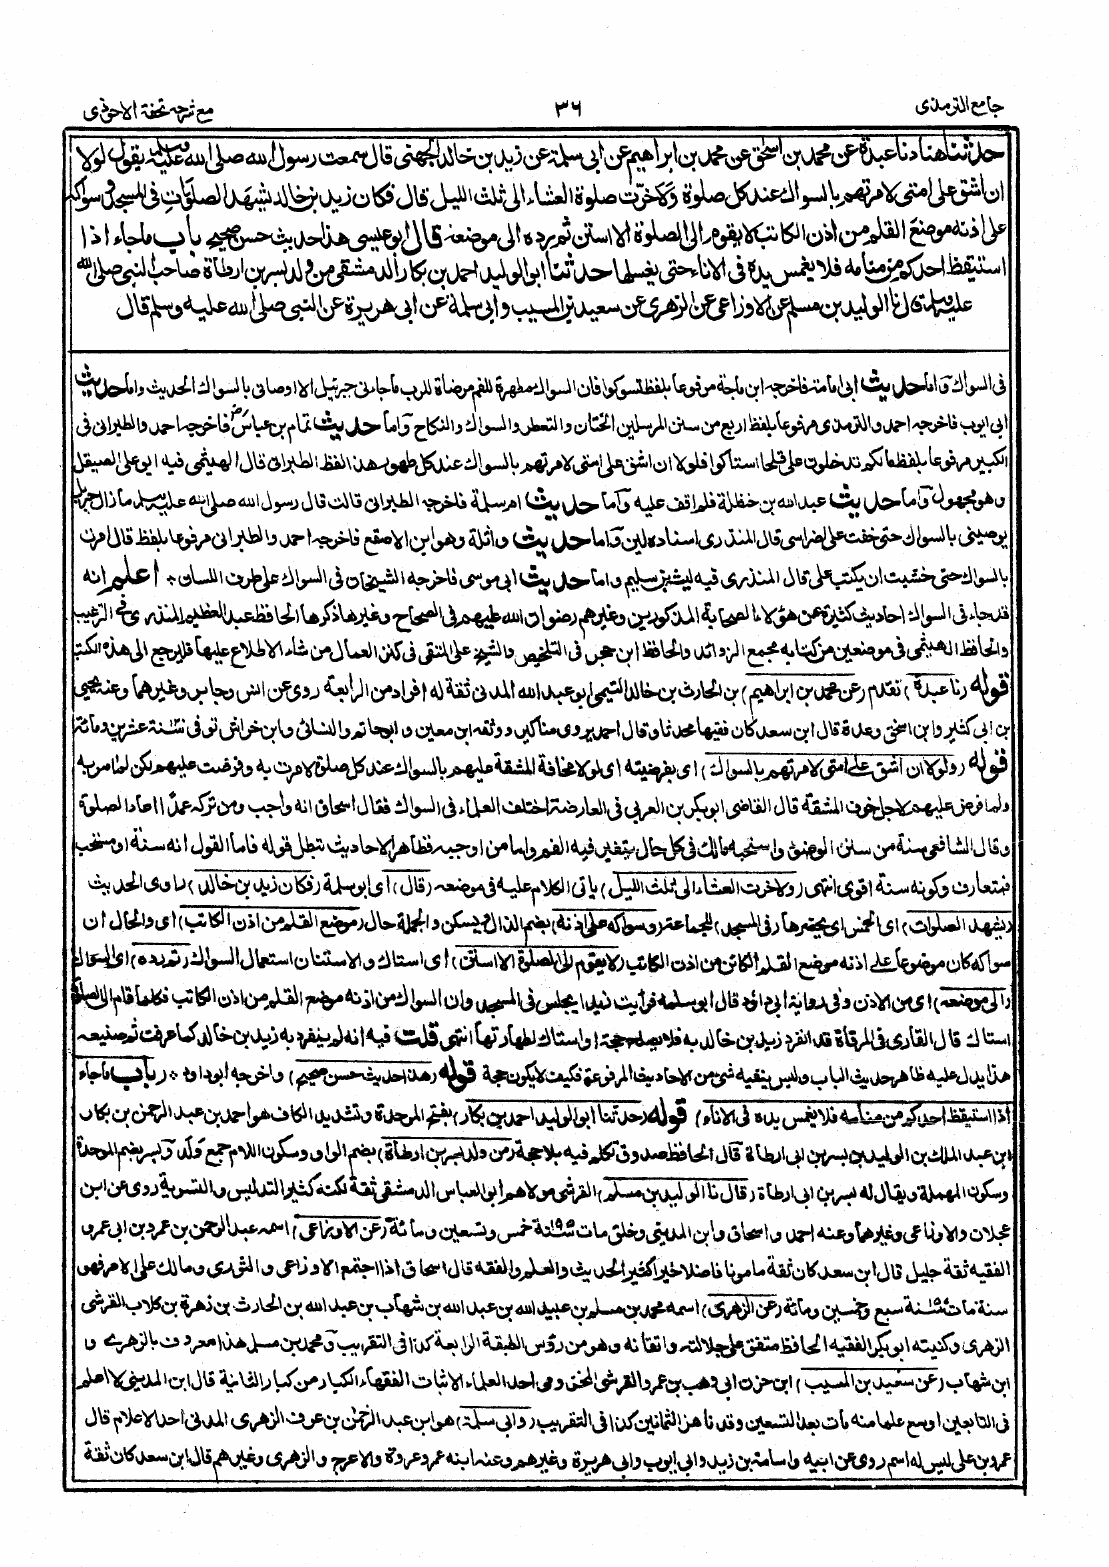 جامع الترمذی
٣٦
مع شرحه تحفة الاحوذی
حدثنا هناد نا عبدة عن محمد بن اسحٰق عن محمد بن ابراهيم عن ابی سلمة عن زيد بن خالد الجهنی قال سمعت رسول الله صلی الله عليه وسلم يقول لولا
ان اشق علی امتی لامرتهم بالسواك عند كل صلوة ولاخرت صلوة العشاء الی ثلث الليل قال فكان زيد بن خالد يشهد الصلوات فی المسجد وسواكه
علی اذنه موضع القلم من اذن الكاتب لا يقوم الی الصلوة الا استن ثم رده الی موضعه قال ابو عيسی هذا حديث حسن صحيح باب ماجاء اذا
استيقظ احدكم من منامه فلا يغمس يده فی الاناء حتی يغسلها حدثنا ابو الوليد احمد بن بكار الدمشقی من ولد بسر بن ارطاة صاحب النبی صلی الله
عليه وسلم قال نا الوليد بن مسلم عن الاوزاعی عن الزهری عن سعيد بن المسيب وابی سلمة عن ابی هريرة عن النبی صلی الله عليه وسلم قال
فی السواك واما حديث ابی امامة فاخرجه ابن ماجة مرفوعا بلفظ تسوكوا فان السواك مطهرة للفم مرضاة للرب ماجاءنی جبرئيل الا اوصانی بالسواك الحديث واما حديث
ابی ايوب فاخرجه احمد والترمذی مرفوعا بلفظ اربع من سنن المرسلين الختان والتعطر والسواك والنكاح واما حديث تمام بن عباس فاخرجه احمد والطبرانی فی
الكبير مرفوعا بلفظ مالكم تدخلون علی قلحا استاكوا فلولا ان اشق علی امتی لامرتهم بالسواك عند كل طهور هذا لفظ الطبرانی قال الهيثمی فيه ابو علی الصيقل
وهو مجهول واما حديث عبد الله بن حنظلة فلم اقف عليه واما حديث ام سلمة فاخرجه الطبرانی قالت قال رسول الله صلی الله عليه وسلم ما زال جبرئيل
يوصينی بالسواك حتی خفت علی اضراسی قال المنذری اسناده لين واما حديث واثلة وهو ابن الاسقع فاخرجه احمد والطبرانی مرفوعا بلفظ قال امرت
بالسواك حتی خشيت ان يكتب علی قال المنذری فيه ليث بن سليم واما حديث ابی موسی فاخرجه الشيخان فی السواك علی طرف اللسان * اعلم انه
قد جاء فی السواك احاديث كثيرة عن هؤلاء الصحابة المذكورين وغيرهم رضوان الله عليهم فی الصحاح وغيرها ذكرها الحافظ عبد العظيم المنذری فی الترغيب
والحافظ الهيثمی فی موضعين من كتابه مجمع الزوائد والحافظ ابن حجر فی التلخيص والشيخ علی المتقی فی كنز العمال من شاء الاطلاع عليها فليرجع الی هذه الكتب
قوله (نا عبدة) تقدم (عن محمد بن ابراهيم) بن الحارث بن خالد التيمی ابو عبد الله المدنی ثقة له افراد من الرابعة روی عن انس وجابر وغيرهما وعنه يحيی
بن ابی كثير وابن اسحٰق وعدة قال ابن سعد كان فقيها محدثا وقال احمد يروی مناكير ووثقه ابن معين وابوحاتم والنسائی وابن خراش توفی سنة عشرين ومائة
قوله (لولا ان اشق علی امتی لامرتهم بالسواك) ای بفرضيته ای لولا مخافة المشقة عليهم بالسواك عند كل صلوة لامرت به وفرضت عليهم لكن لم امر به
ولم افرض عليهم لاجل خوف المشقة قال القاضی ابوبكر بن العربی فی العارضة اختلف العلماء فی السواك فقال اسحاق انه واجب ومن تركه عمدا اعاد الصلوة
وقال الشافعی سنة من سنن الوضوء واستحبه مالك فی كل حال يتغير فيه الفم واما من اوجبه فظاهر الاحاديث تبطل قوله فاما القول انه سنة او مستحب
فمتعارف وكونه سنة اقوی انتهی (ولاخرت العشاء الی ثلث الليل) ياتی الكلام عليه فی موضعه (قال) ای ابو سلمة (فكان زيد بن خالد) راوی الحديث
(يشهد الصلوات) ای الخمس ای يحضرها (فی المسجد) للجماعة (وسواكه علی اذنه) بضم الذال ويسكن والجملة حال (موضع القلم من اذن الكاتب) ای والحال ان
سواكه كان موضوعا علی اذنه موضع القلم الكائن من اذن الكاتب (لا يقوم الی الصلوة الا استن) ای استاك والاستنان استعمال السواك (ثم رده) ای السواك
(الی موضعه) ای من الاذن وفی رواية ابی داؤد قال ابو سلمة فرأيت زيدا يجلس فی المسجد وان السواك من اذنه موضع القلم من اذن الكاتب فكلما قام الی الصلوة
استاك قال القاری فی المرقاة قد انفرد زيد بن خالد به فلا يصلح حجة او استاك لطهارتها انتهی قلت فيه انه لم ينفرد به زيد بن خالد كما عرفت ثم صنيعه
هذا يدل عليه ظاهر حديث الباب وليس ينفيه شئ من الاحاديث المرفوعة فكيف لا يكون حجة قوله (هذا حديث حسن صحيح) واخرجه ابو داود * (باب ماجاء
اذا استيقظ احدكم من منامه فلا يغمس يده فی الاناء) قوله (حدثنا ابو الوليد احمد بن بكار) بفتح الموحدة وتشديد الكاف هو احمد بن عبد الرحمٰن بن بكار
ابن عبد الملك بن الوليد بن بسر بن ابی ارطاة قال الحافظ صدوق تكلم فيه بلا حجة (من ولد بسر بن ارطاة) بضم الواو وسكون اللام جمع ولد وبسر بضم الموحدة
وسكون المهملة ويقال له بسر بن ابی ارطاة (قال نا الوليد بن مسلم) القرشی مولاهم ابو العباس الدمشقی ثقة لكنه كثير التدليس والتسوية روی عن ابن
عجلان والاوزاعی وغيرهما وعنه احمد واسحاق وابن المدينی وخلق مات سنة ١٩٥ خمس وتسعين ومائة (عن الاوزاعی) اسمه عبد الرحمٰن بن عمرو بن ابی عمرو
الفقيه ثقة جليل قال ابن سعد كان ثقة مامونا فاضلا خيرا كثير الحديث والعلم والفقه قال اسحاق اذا اجتمع الاوزاعی والثوری ومالك علی الامر فهو
سنة مات سنة ١٥٧ سبع وخمسين ومائة (عن الزهری) اسمه محمد بن مسلم بن عبيد الله بن عبد الله بن شهاب بن عبد الله بن الحارث بن زهرة بن كلاب القرشی
الزهری وكنيته ابو بكر الفقيه الحافظ متفق علی جلالته واتقانه وهو من رؤس الطبقة الرابعة كذا فی التقريب ومحمد بن مسلم هذا معروف بالزهری و
ابن شهاب (عن سعيد بن المسيب) ابن حزن ابی وهب بن عمرو القرشی المخزومی احد العلماء الاثبات الفقهاء الكبار من كبار الثانية قال ابن المدينی لا اعلم
فی التابعين اوسع علما منه مات بعد التسعين وقد ناهز الثمانين كذا فی التقريب (وابی سلمة) هو ابن عبد الرحمٰن بن عوف الزهری المدنی احد الاعلام قال
عمرو بن علی ليس له اسم روی عن ابيه واسامة بن زيد وابی ايوب وابی هريرة وغيرهم وعنه ابنه عمر وعروة والاعرج والزهری وغيرهم قال ابن سعد كان ثقة